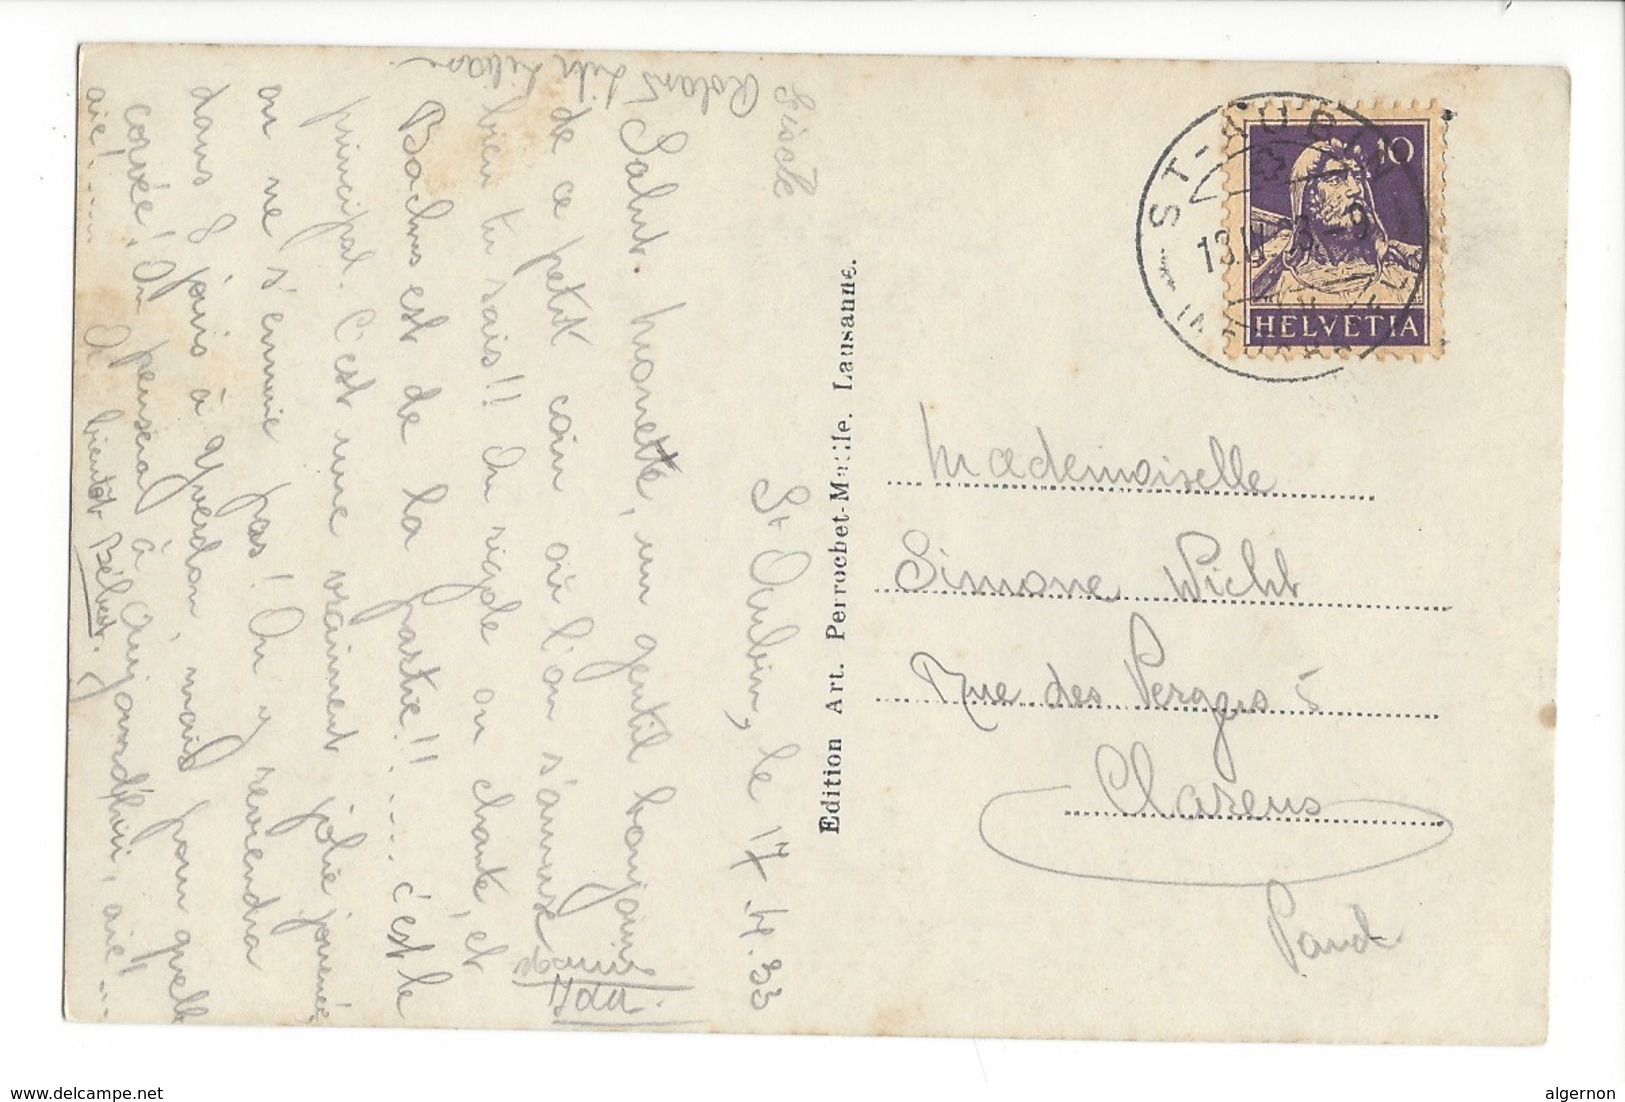 St Aubin, le 17.4.33
Salut Monette, un gentil bonjour
de ce petit coin où l'on s'amuse
bien tu sais!! On rigole on chante, et
Bachus est de la partie!!.... c'est le
principal. C'est une vraiment jolie journée
on ne s'ennuie pas! On y reviendra
dans 8 jours à Yverdon, mais pour quelle
corvée! On pensera à aujourd'hui, aïe!...
aïe!.... A bientôt Bébert.
Ida
Edition Art. Perrochet-Matile. Lausanne.
ST-AUBIN
10
HELVETIA
Mademoiselle
Simone Wicht
Rue des Vergers 5
Clarens
Vaud
www.delcampe.net
algernon